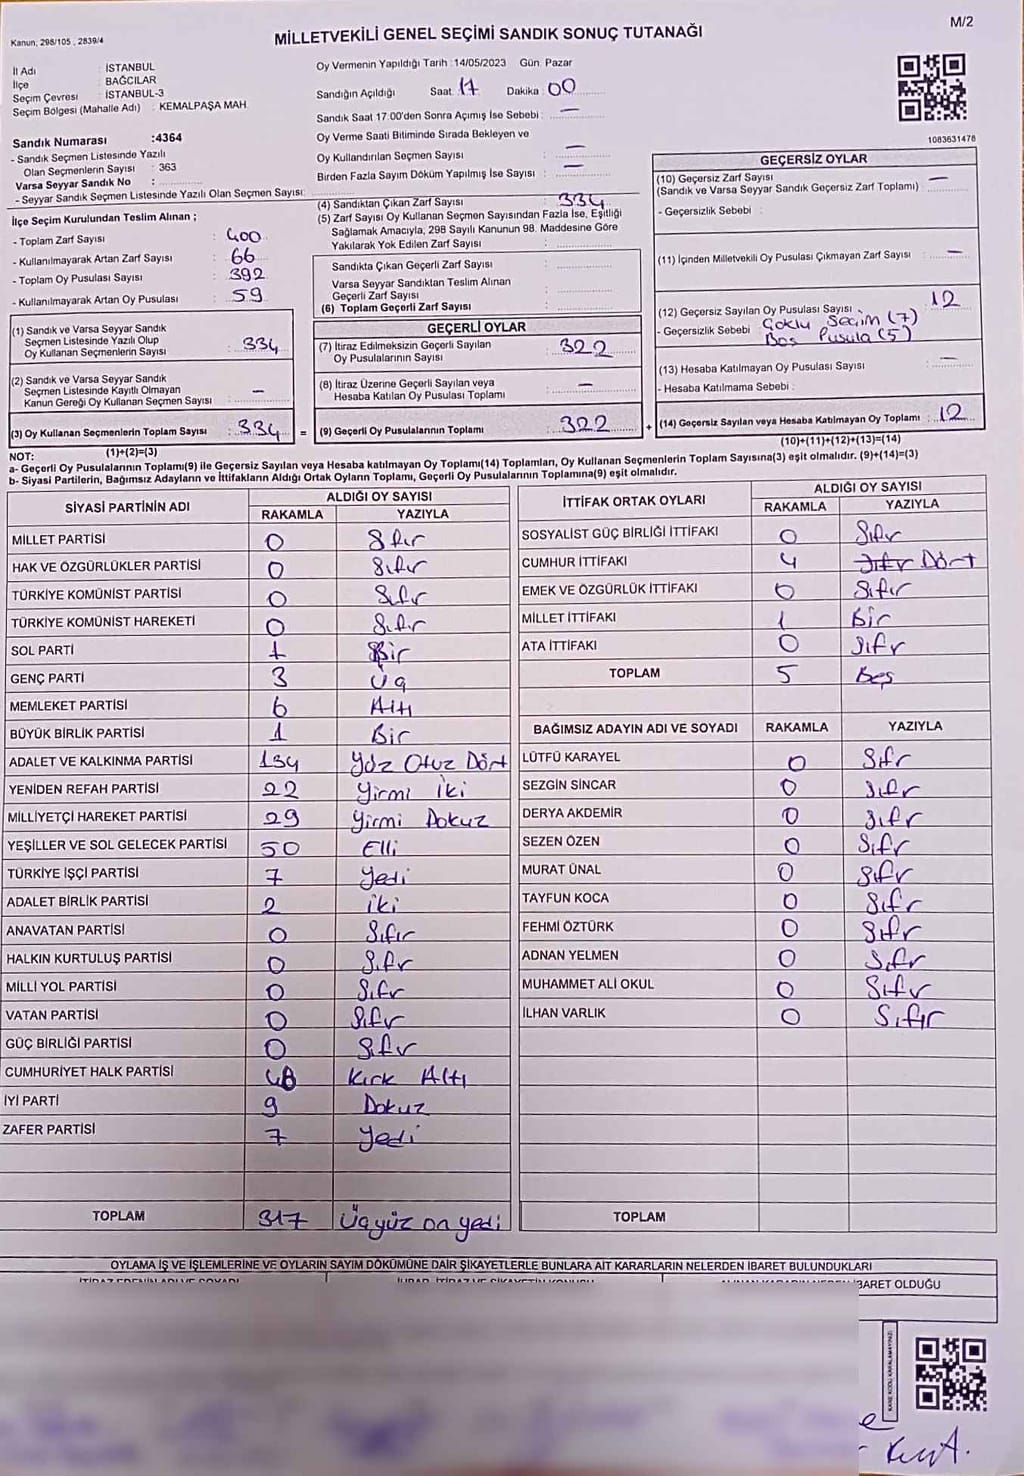 Kanun; 298/105 , 2839/4
MİLLETVEKİLİ GENEL SEÇİMİ SANDIK SONUÇ TUTANAĞI
M/2
İl Adı : İSTANBUL
İlçe : BAĞCILAR
Seçim Çevresi : İSTANBUL-3
Seçim Bölgesi (Mahalle Adı) : KEMALPAŞA MAH.
Oy Vermenin Yapıldığı Tarih :14/05/2023 Gün: Pazar
Sandığın Açıldığı Saat: 17 Dakika: 00
Sandık Saat 17:00'den Sonra Açımış İse Sebebi : —
Oy Verme Saati Bitiminde Sırada Bekleyen ve
Oy Kullandırılan Seçmen Sayısı : —
Birden Fazla Sayım Döküm Yapılmış İse Sayısı : —
1083631478
Sandık Numarası :4364
- Sandık Seçmen Listesinde Yazılı
Olan Seçmenlerin Sayısı : 363
Varsa Seyyar Sandık No :
- Seyyar Sandık Seçmen Listesinde Yazılı Olan Seçmen Sayısı:
İlçe Seçim Kurulundan Teslim Alınan ;
- Toplam Zarf Sayısı : 400
- Kullanılmayarak Artan Zarf Sayısı : 66
- Toplam Oy Pusulası Sayısı : 392
- Kullanılmayarak Artan Oy Pusulası : 59
(1) Sandık ve Varsa Seyyar Sandık
Seçmen Listesinde Yazılı Olup
Oy Kullanan Seçmenlerin Sayısı : 334
(2) Sandık ve Varsa Seyyar Sandık
Seçmen Listesinde Kayıtlı Olmayan
Kanun Gereği Oy Kullanan Seçmen Sayısı : —
(3) Oy Kullanan Seçmenlerin Toplam Sayısı : 334 =
(1)+(2)=(3)
(4) Sandıktan Çıkan Zarf Sayısı : 334
(5) Zarf Sayısı Oy Kullanan Seçmen Sayısından Fazla İse, Eşitliği
Sağlamak Amacıyla, 298 Sayılı Kanunun 98. Maddesine Göre
Yakılarak Yok Edilen Zarf Sayısı :
Sandıkta Çıkan Geçerli Zarf Sayısı :
Varsa Seyyar Sandıktan Teslim Alınan
Geçerli Zarf Sayısı :
(6) Toplam Geçerli Zarf Sayısı :
GEÇERLİ OYLAR
(7) İtiraz Edilmeksizin Geçerli Sayılan
Oy Pusulalarının Sayısı : 322
(8) İtiraz Üzerine Geçerli Sayılan veya
Hesaba Katılan Oy Pusulası Toplamı : —
(9) Geçerli Oy Pusulalarının Toplamı : 322 +
GEÇERSİZ OYLAR
(10) Geçersiz Zarf Sayısı : —
(Sandık ve Varsa Seyyar Sandık Geçersiz Zarf Toplamı)
- Geçersizlik Sebebi :
(11) İçinden Milletvekili Oy Pusulası Çıkmayan Zarf Sayısı : —
(12) Geçersiz Sayılan Oy Pusulası Sayısı : 12
- Geçersizlik Sebebi : Çoklu Seçim (7)
Boş Pusula (5)
(13) Hesaba Katılmayan Oy Pusulası Sayısı : —
- Hesaba Katılmama Sebebi :
(14) Geçersiz Sayılan veya Hesaba Katılmayan Oy Toplamı : 12
(10)+(11)+(12)+(13)=(14)
NOT:
a- Geçerli Oy Pusulalarının Toplamı(9) ile Geçersiz Sayılan veya Hesaba katılmayan Oy Toplamı(14) Toplamları, Oy Kullanan Seçmenlerin Toplam Sayısına(3) eşit olmalıdır. (9)+(14)=(3)
b- Siyasi Partilerin, Bağımsız Adayların ve İttifakların Aldığı Ortak Oyların Toplamı, Geçerli Oy Pusulalarının Toplamına(9) eşit olmalıdır.
SİYASİ PARTİNİN ADI ALDIĞI OY SAYISI
RAKAMLA YAZIYLA
MİLLET PARTİSİ 0 Sıfır
HAK VE ÖZGÜRLÜKLER PARTİSİ 0 Sıfır
TÜRKİYE KOMÜNİST PARTİSİ 0 Sıfır
TÜRKİYE KOMÜNİST HAREKETİ 0 Sıfır
SOL PARTİ 1 Bir
GENÇ PARTİ 3 Üç
MEMLEKET PARTİSİ 6 Altı
BÜYÜK BİRLİK PARTİSİ 1 Bir
ADALET VE KALKINMA PARTİSİ 134 Yüz Otuz Dört
YENİDEN REFAH PARTİSİ 22 Yirmi İki
MİLLİYETÇİ HAREKET PARTİSİ 29 Yirmi Dokuz
YEŞİLLER VE SOL GELECEK PARTİSİ 50 Elli
TÜRKİYE İŞÇİ PARTİSİ 7 Yedi
ADALET BİRLİK PARTİSİ 2 İki
ANAVATAN PARTİSİ 0 Sıfır
HALKIN KURTULUŞ PARTİSİ 0 Sıfır
MİLLİ YOL PARTİSİ 0 Sıfır
VATAN PARTİSİ 0 Sıfır
GÜÇ BİRLİĞİ PARTİSİ 0 Sıfır
CUMHURİYET HALK PARTİSİ 46 Kırk Altı
İYİ PARTİ 9 Dokuz
ZAFER PARTİSİ 7 Yedi
TOPLAM 317 Üçyüz on yedi
İTTİFAK ORTAK OYLARI ALDIĞI OY SAYISI
RAKAMLA YAZIYLA
SOSYALİST GÜÇ BİRLİĞİ İTTİFAKI 0 Sıfır
CUMHUR İTTİFAKI 4 Sıfır Dört
EMEK VE ÖZGÜRLÜK İTTİFAKI 0 Sıfır
MİLLET İTTİFAKI 1 Bir
ATA İTTİFAKI 0 Sıfır
TOPLAM 5 Beş
BAĞIMSIZ ADAYIN ADI VE SOYADI RAKAMLA YAZIYLA
LÜTFÜ KARAYEL 0 Sıfır
SEZGİN SİNCAR 0 Sıfır
DERYA AKDEMİR 0 Sıfır
SEZEN ÖZEN 0 Sıfır
MURAT ÜNAL 0 Sıfır
TAYFUN KOCA 0 Sıfır
FEHMİ ÖZTÜRK 0 Sıfır
ADNAN YELMEN 0 Sıfır
MUHAMMET ALİ OKUL 0 Sıfır
İLHAN VARLIK 0 Sıfır
TOPLAM
OYLAMA İŞ VE İŞLEMLERİNE VE OYLARIN SAYIM DÖKÜMÜNE DAİR ŞİKAYETLERLE BUNLARA AİT KARARLARIN NELERDEN İBARET BULUNDUKLARI
İBARET OLDUĞU